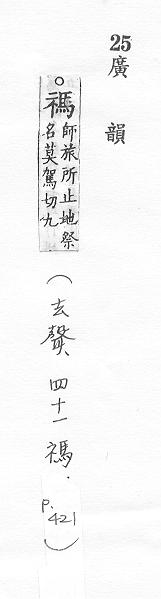 25廣韻
○禡師旅所止地祭
名莫駕切九
(去聲、四十一禡.
p.421)